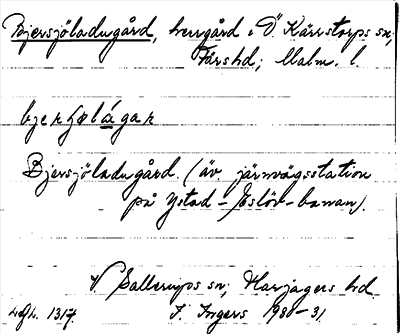 Bjersjöladugård, herrgård i Ö. Kärrstorps sn,
Färshd; Malm. l.
Bjersjöladugård. (äv. järnvägsstation
på Ystad-Eslöv-banan).
V. Sallerups sn, Harjagers hd.
I. Ingers 1930-31